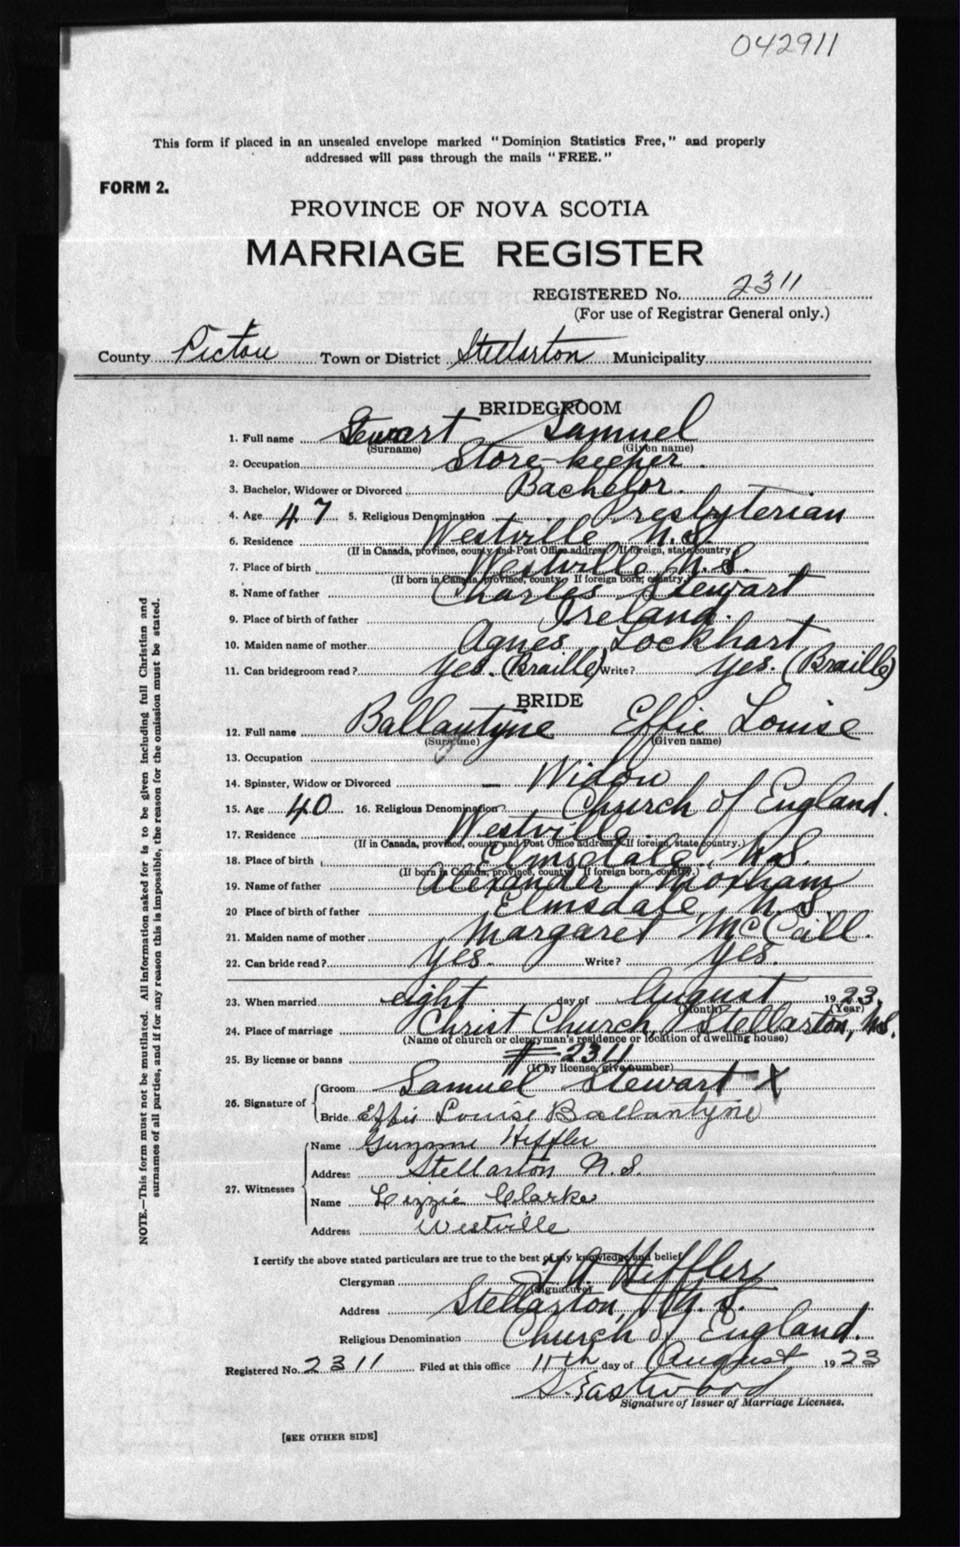 042911
This form if placed in an unsealed envelope marked "Dominion Statistics Free," and properly
addressed will pass through the mails "FREE."
FORM 2.
PROVINCE OF NOVA SCOTIA
MARRIAGE REGISTER
REGISTERED No. 2311
(For use of Registrar General only.)
County Pictou Town or District Stellarton Municipality
BRIDEGROOM
1. Full name Stewart Samuel
(Surname) (Given name)
2. Occupation Store-keeper.
3. Bachelor, Widower or Divorced Bachelor.
4. Age 47 5. Religious Denomination Presbyterian
6. Residence Westville N.S.
(If in Canada, province, county and Post Office address. If foreign, state country.)
7. Place of birth Westville N.S.
(If born in Canada, province, county. If foreign born, country.)
8. Name of father Charles Stewart
9. Place of birth of father Ireland.
10. Maiden name of mother Agnes Lockhart
11. Can bridegroom read? Yes. (Braille) Write? Yes. (Braille)
BRIDE
12. Full name Ballantyne Effie Louise
(Surname) (Given name)
13. Occupation
14. Spinster, Widow or Divorced — Widow
15. Age 40 16. Religious Denomination? Church of England.
17. Residence Westville.
(If in Canada, province, county and Post Office address. If foreign, state country.)
18. Place of birth Elmsdale, N.S.
(If born in Canada, province, county. If foreign born, country.)
19. Name of father Alexander Moxham
20 Place of birth of father Elmsdale N.S.
21. Maiden name of mother Margaret McCaill.
22. Can bride read? Yes. Write? Yes.
23. When married eight day of August 1923.
(Month) (Year)
24. Place of marriage Christ Church, Stellarton, N.S.
(Name of church or clergyman's residence or location of dwelling house)
25. By license or banns # 2311
(If by license, give number)
26. Signature of
Groom Samuel Stewart X
Bride Effie Louise Ballantyne
27. Witnesses
Name Heffler
Address Stellarton N.S.
Name Lizzie Clarke
Address Westville
I certify the above stated particulars are true to the best of my knowledge and belief
Clergyman Heffler
(Signature)
Address Stellarton, N.S.
Religious Denomination Church of England.
Registered No. 2311 Filed at this office 11th day of August 1923
S. Eastwood
Signature of Issuer of Marriage Licenses.
[SEE OTHER SIDE]
NOTE.—This form must not be mutilated. All information asked for is to be given including full Christian and
surnames of all parties, and if for any reason this is impossible, the reason for the omission must be stated.